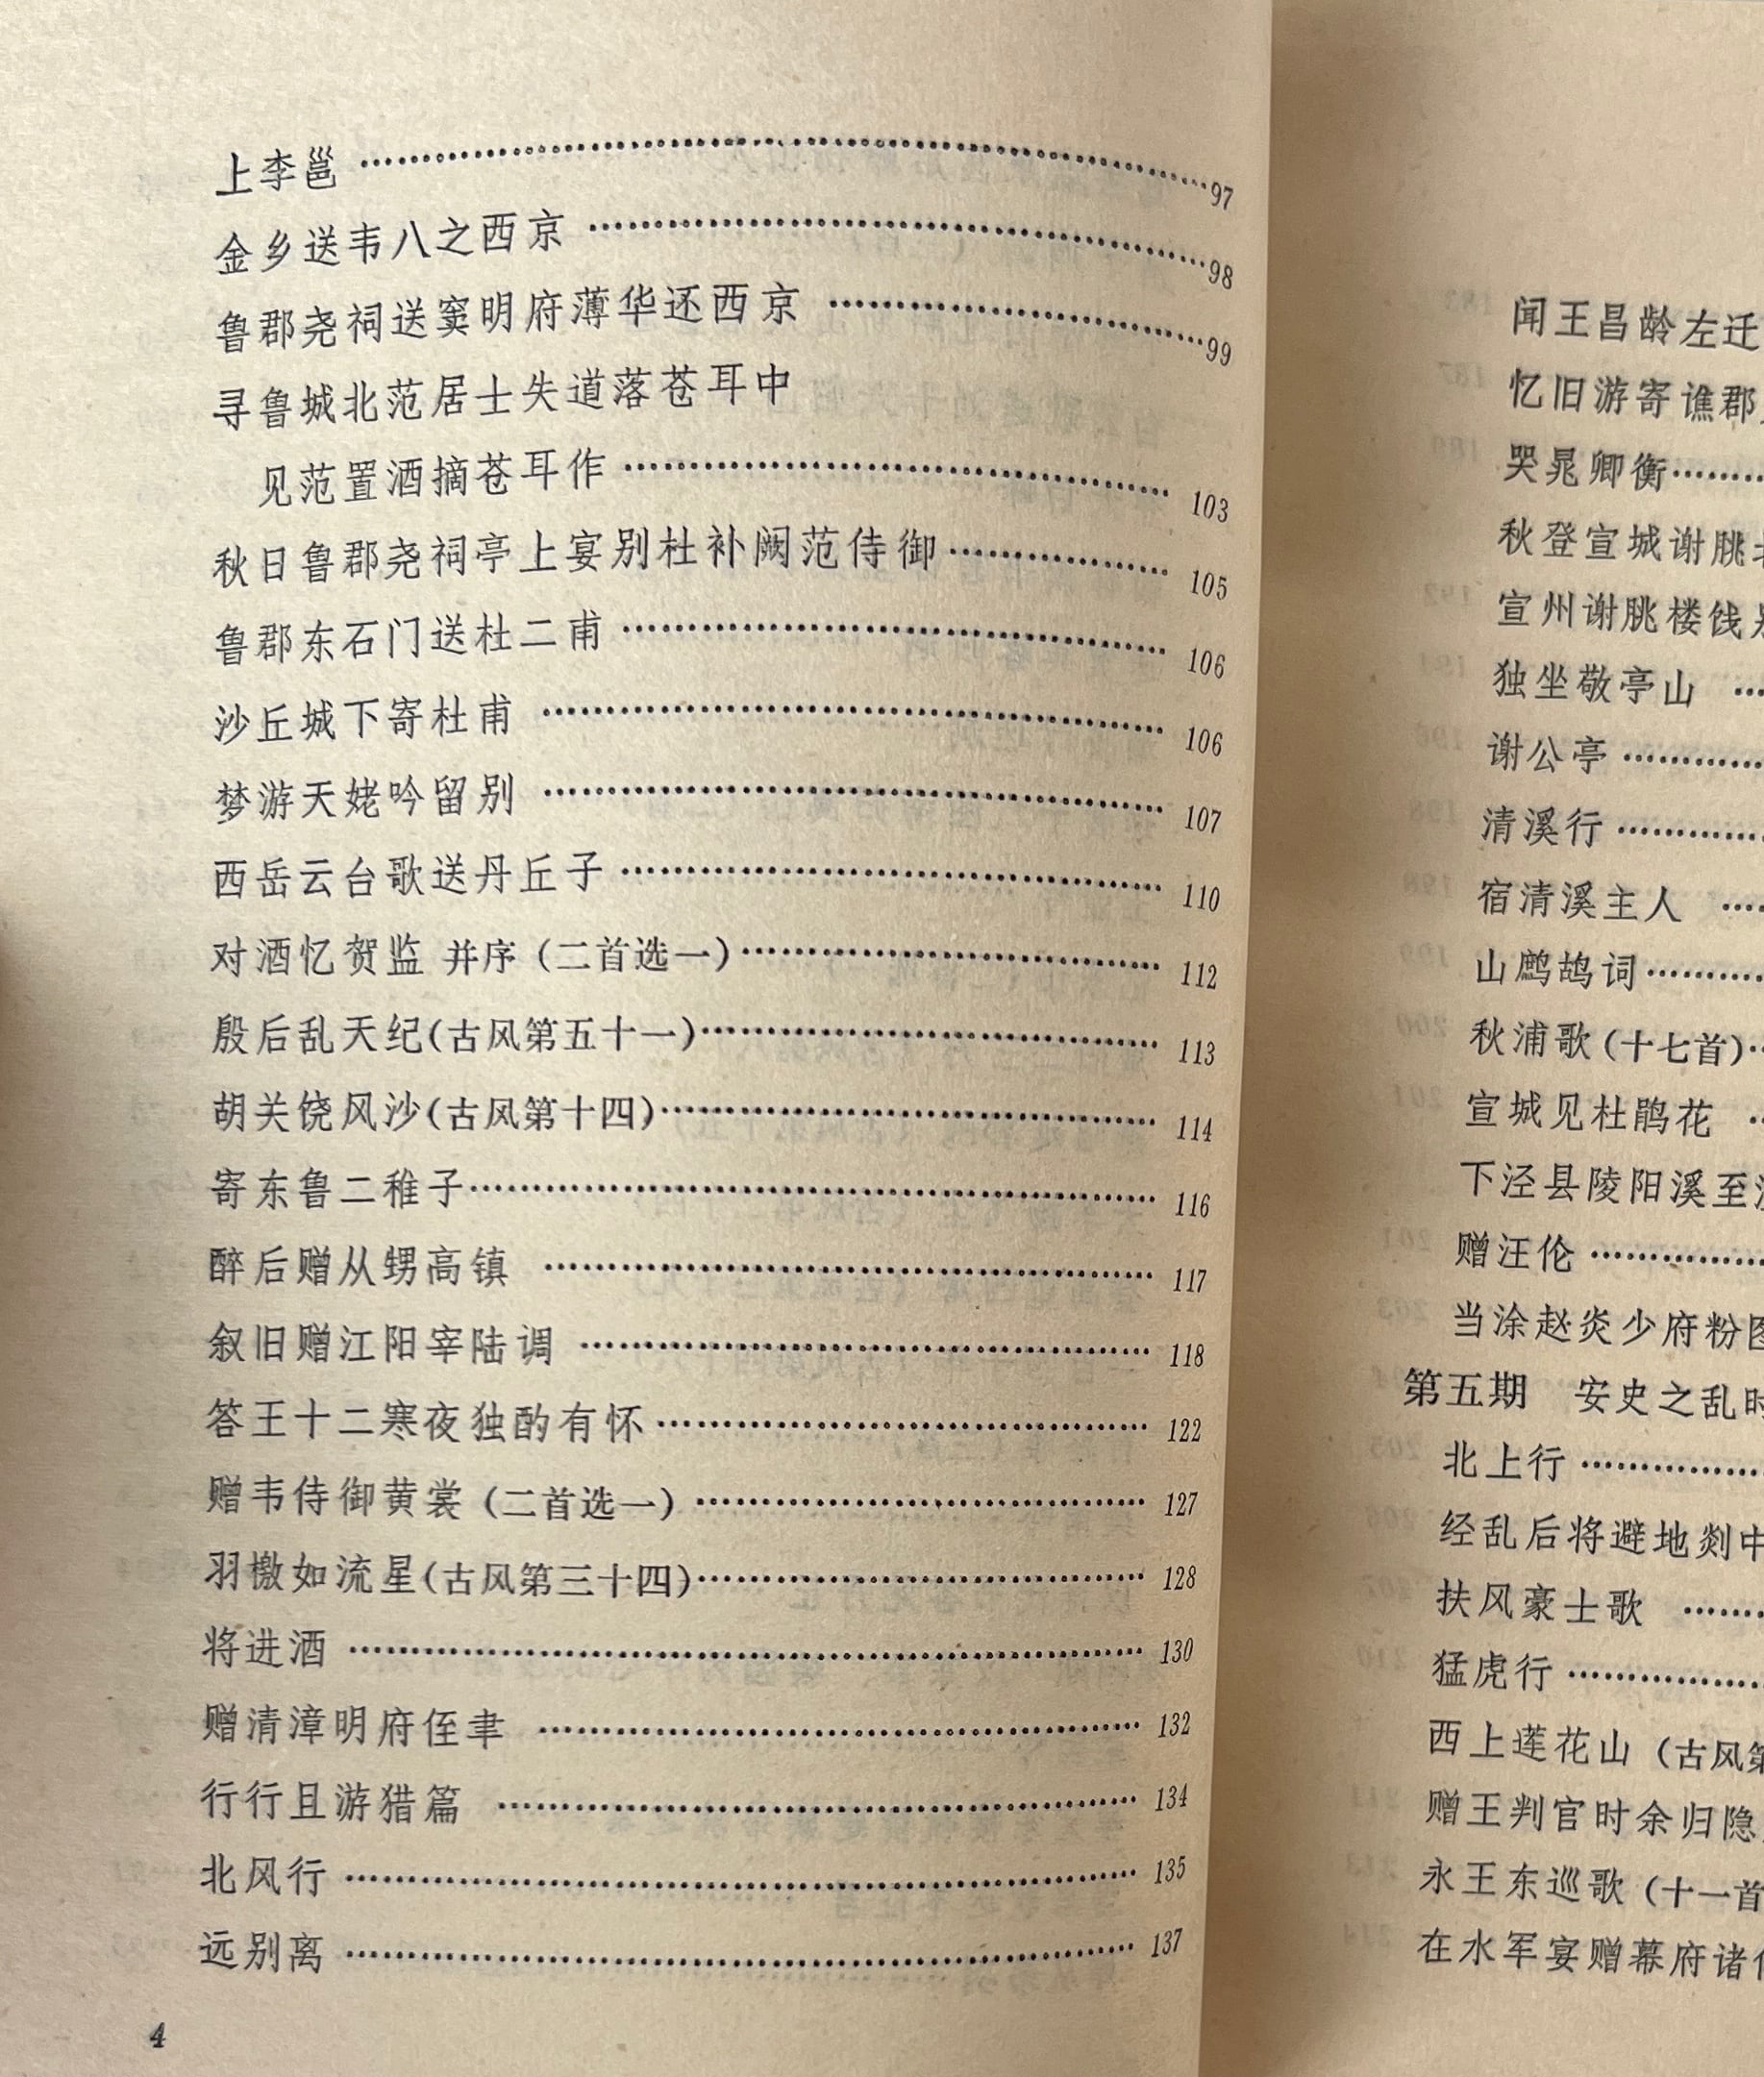 上李邕……97
金乡送韦八之西京……98
鲁郡尧祠送窦明府薄华还西京……99
寻鲁城北范居士失道落苍耳中
见范置酒摘苍耳作……103
秋日鲁郡尧祠亭上宴别杜补阙范侍御……105
鲁郡东石门送杜二甫……106
沙丘城下寄杜甫……106
梦游天姥吟留别……107
西岳云台歌送丹丘子……110
对酒忆贺监 并序（二首选一）……112
殷后乱天纪(古风第五十一)……113
胡关饶风沙(古风第十四)……114
寄东鲁二稚子……116
醉后赠从甥高镇……117
叙旧赠江阳宰陆调……118
答王十二寒夜独酌有怀……122
赠韦侍御黄裳（二首选一）……127
羽檄如流星(古风第三十四)……128
将进酒……130
赠清漳明府侄聿……132
行行且游猎篇……134
北风行……135
远别离……137
4
闻王昌龄左迁
忆旧游寄谯郡
哭晁卿衡……
秋登宣城谢朓
宣州谢朓楼饯
独坐敬亭山……
谢公亭……
清溪行……
宿清溪主人……
山鹧鸪词……
秋浦歌(十七首)…
宣城见杜鹃花…
下泾县陵阳溪至
赠汪伦……
当涂赵炎少府粉
第五期 安史之乱
北上行……
经乱后将避地剡中
扶风豪士歌……
猛虎行……
西上莲花山（古风
赠王判官时余归隐
永王东巡歌（十一首
在水军宴赠幕府诸